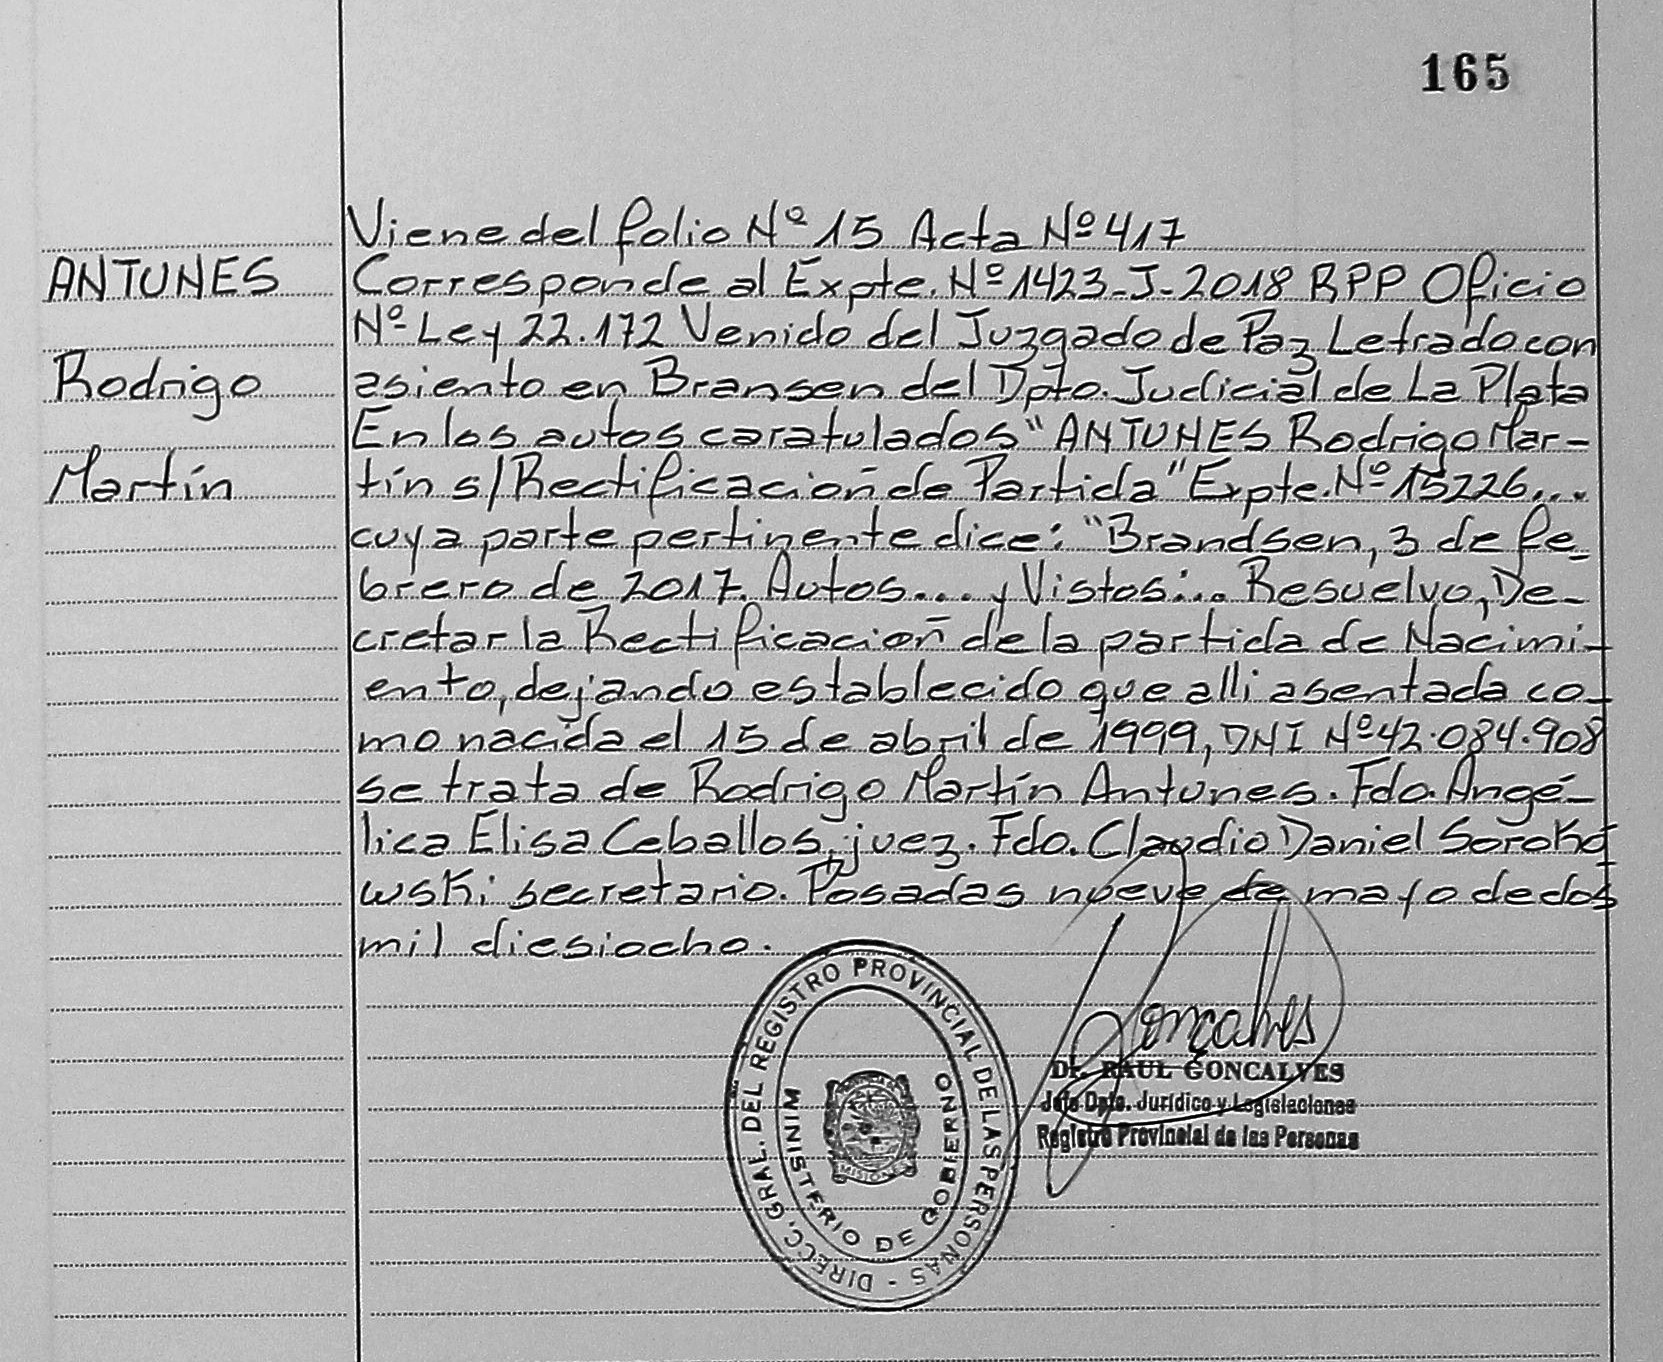 165
Viene del folio Nº 15 Acta Nº 417
ANTUNES
Rodrigo
Martín
Corresponde al Expte. Nº 1423-J-2018 RPP Oficio
Nº Ley 22.172 Venido del Juzgado de Paz Letrado con
asiento en Bransen del Dpto. Judicial de La Plata
En los autos caratulados "ANTUNES Rodrigo Mar-
tín s/Rectificación de Partida" Expte. Nº 15226...
cuya parte pertinente dice: "Brandsen, 3 de fe-
brero de 2017. Autos... y Vistos:... Resuelvo, De-
cretar la Rectificación de la partida de Nacimi-
ento, dejando establecido que alli asentada co-
mo nacida el 15 de abril de 1999, DNI Nº 42.084.908
se trata de Rodrigo Martín Antunes. Fdo. Angé-
lica Elisa Ceballos, juez. Fdo. Claudio Daniel Soroko
wski secretario. Posadas nueve de mayo de dos
mil diesiocho.
DIRECC. GRAL. DEL REGISTRO PROVINCIAL DE LAS PERSONAS -
MINISTERIO DE GOBIERNO
MISIONES
Goncalves
Dr. RAUL GONCALVES
Jefe Dpto. Jurídico y Legislaciones
Registro Provincial de las Personas